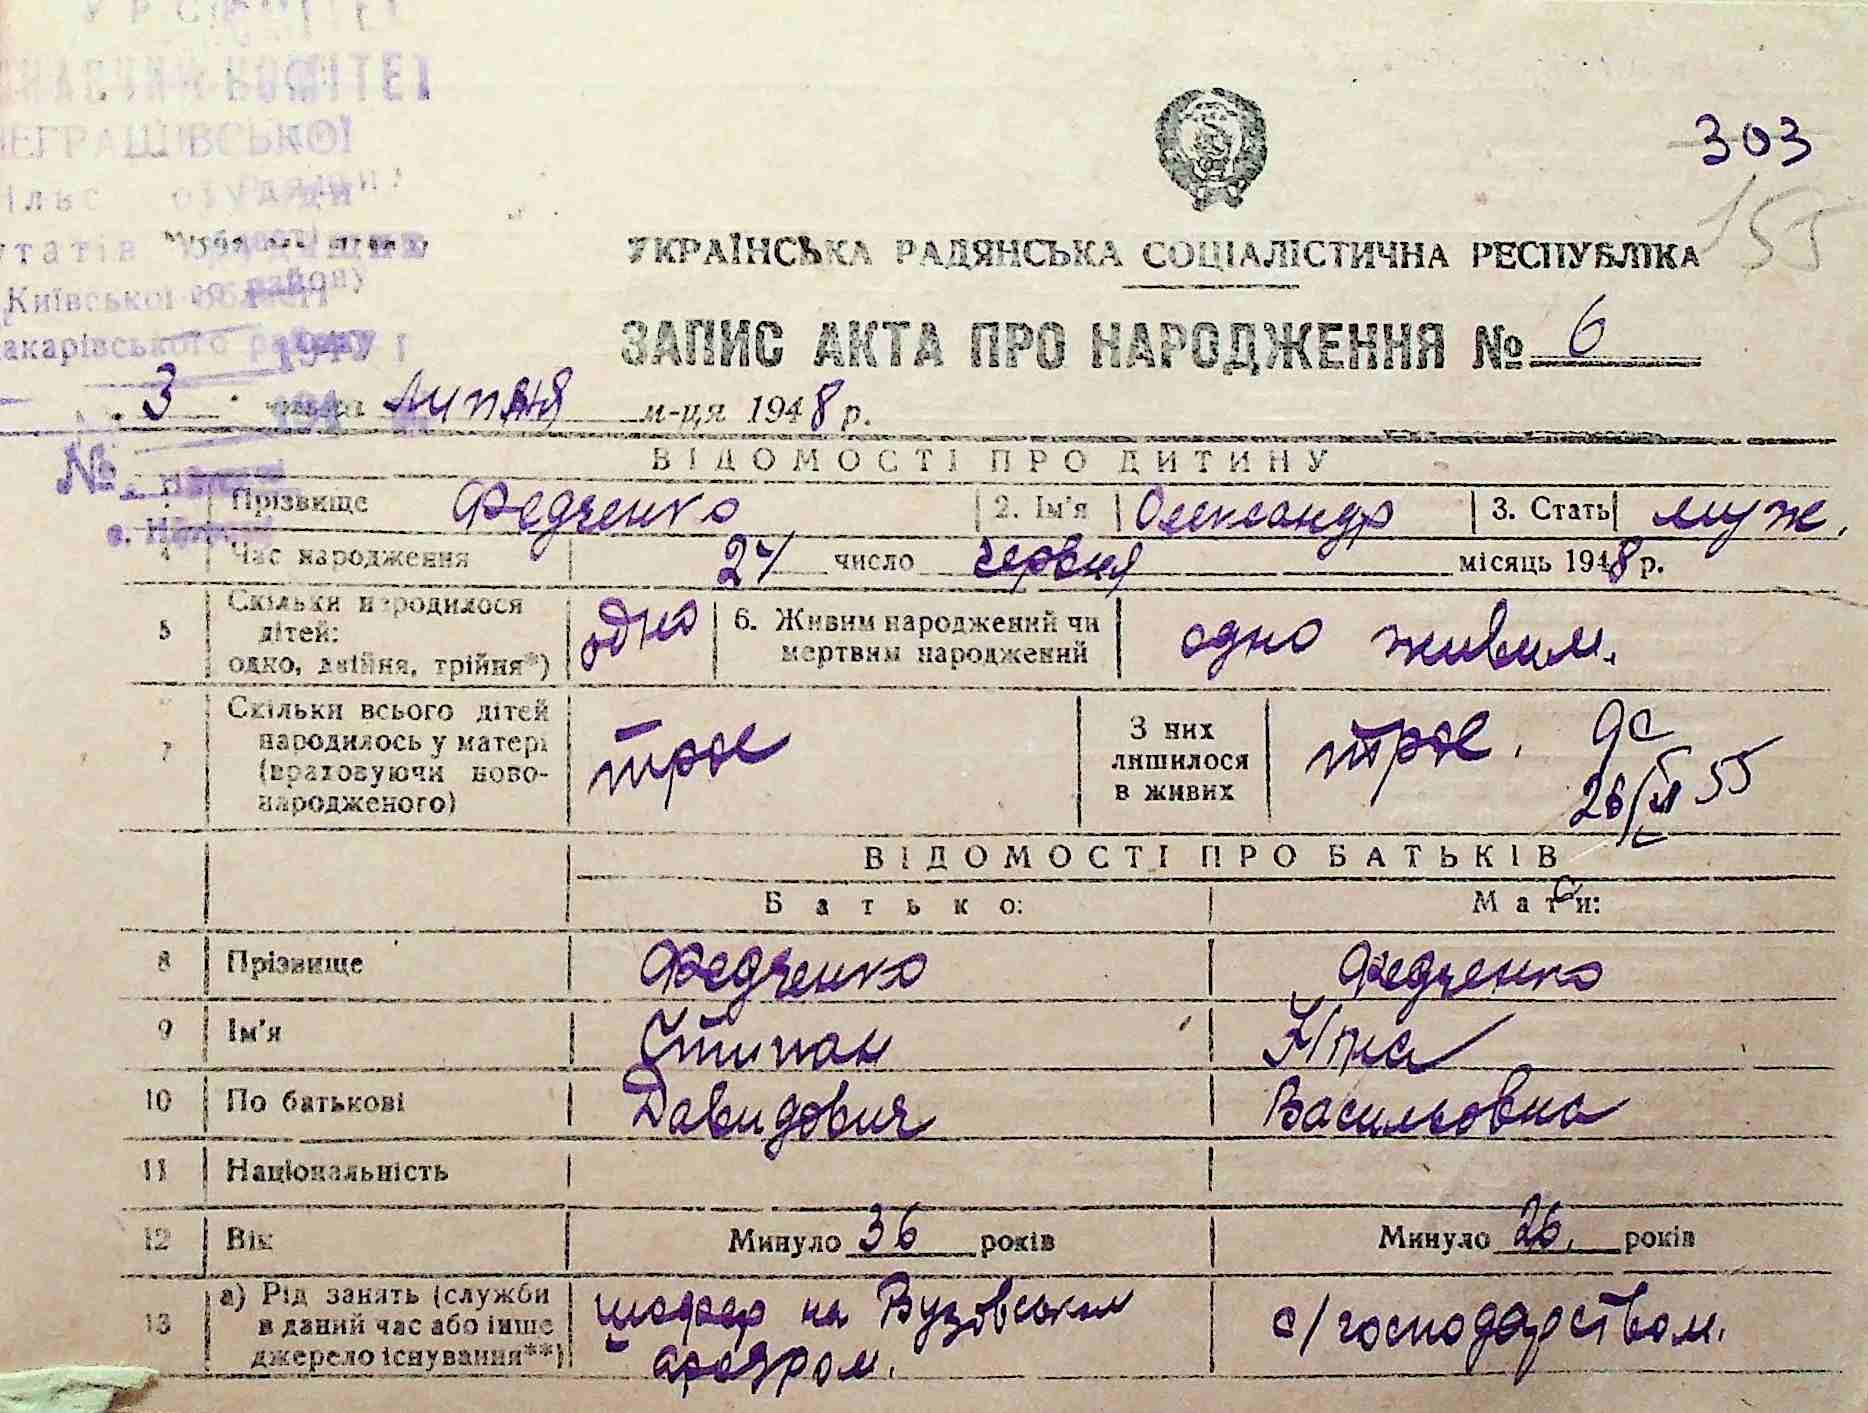 303
155
УКРАЇНСЬКА РАДЯНСЬКА СОЦІАЛІСТИЧНА РЕСПУБЛІКА
ЗАПИС АКТА ПРО НАРОДЖЕННЯ № 6
3 липня м-ця 1948 р.
ВІДОМОСТІ ПРО ДИТИНУ
Прізвище Федченко 2. Ім'я Олександр 3. Стать муж.
4 Час народження 24 число червня місяць 1948 р.
5 Скільки народилося дітей: одно, двійня, трійня*) одно 6. Живим народжений чи мертвим народжений одно живим.
7 Скільки всього дітей народилось у матері (враховуючи новонародженого) троє З них лишилося в живих троє.
26/VI 55
ВІДОМОСТІ ПРО БАТЬКІВ
Батько: Мати:
8 Прізвище Федченко Федченко
9 Ім'я Стипан
10 По батькові Давидович Васильовна
11 Національність
12 Вік Минуло 36 років Минуло 26. років
13 а) Рід занять (служби в даний час або інше джерело існування**) шофер на Вузовським ародром. с/господарством.